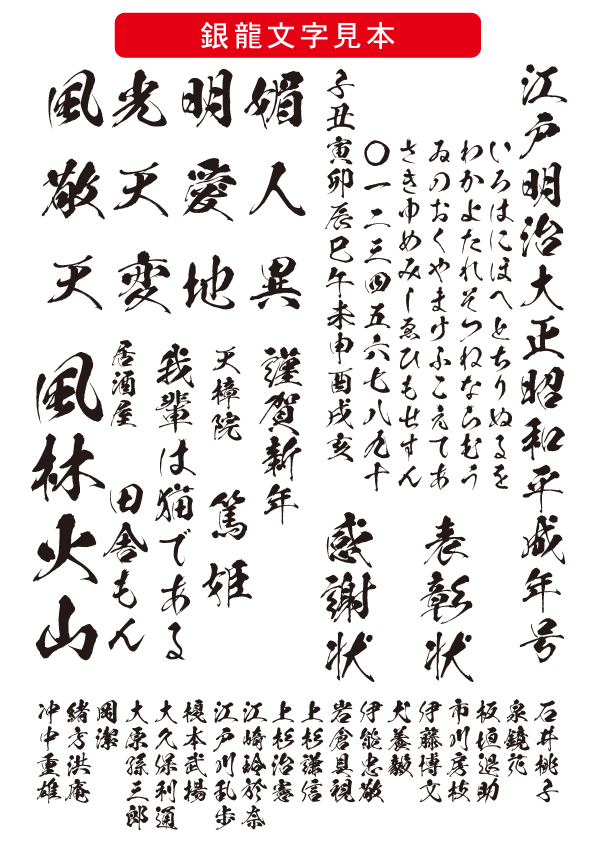 銀龍文字見本
江戸明治大正昭和平成年号
いろはにほへとちりぬるを
わかよたれそつねならむう
ゐのおくやまけふこえてあ
さきゆめみしゑひもせすん
〇一二三四五六七八九十
子丑寅卯辰巳午未申酉戌亥
表彰状
感謝状
媚人異
明愛地
光天変
風敬天
謹賀新年
天樟院 篤姫
我輩は猫である
居酒屋 田舎もん
風林火山
石井桃子
泉鏡苑
板垣退助
市川房枝
伊藤博文
犬養毅
伊能忠敬
岩倉具視
上杉謙信
上杉治憲
江崎玲於奈
江戸川乱歩
榎本武揚
大久保利通
大原孫三郎
岡潔
緒方洪庵
沖中重雄